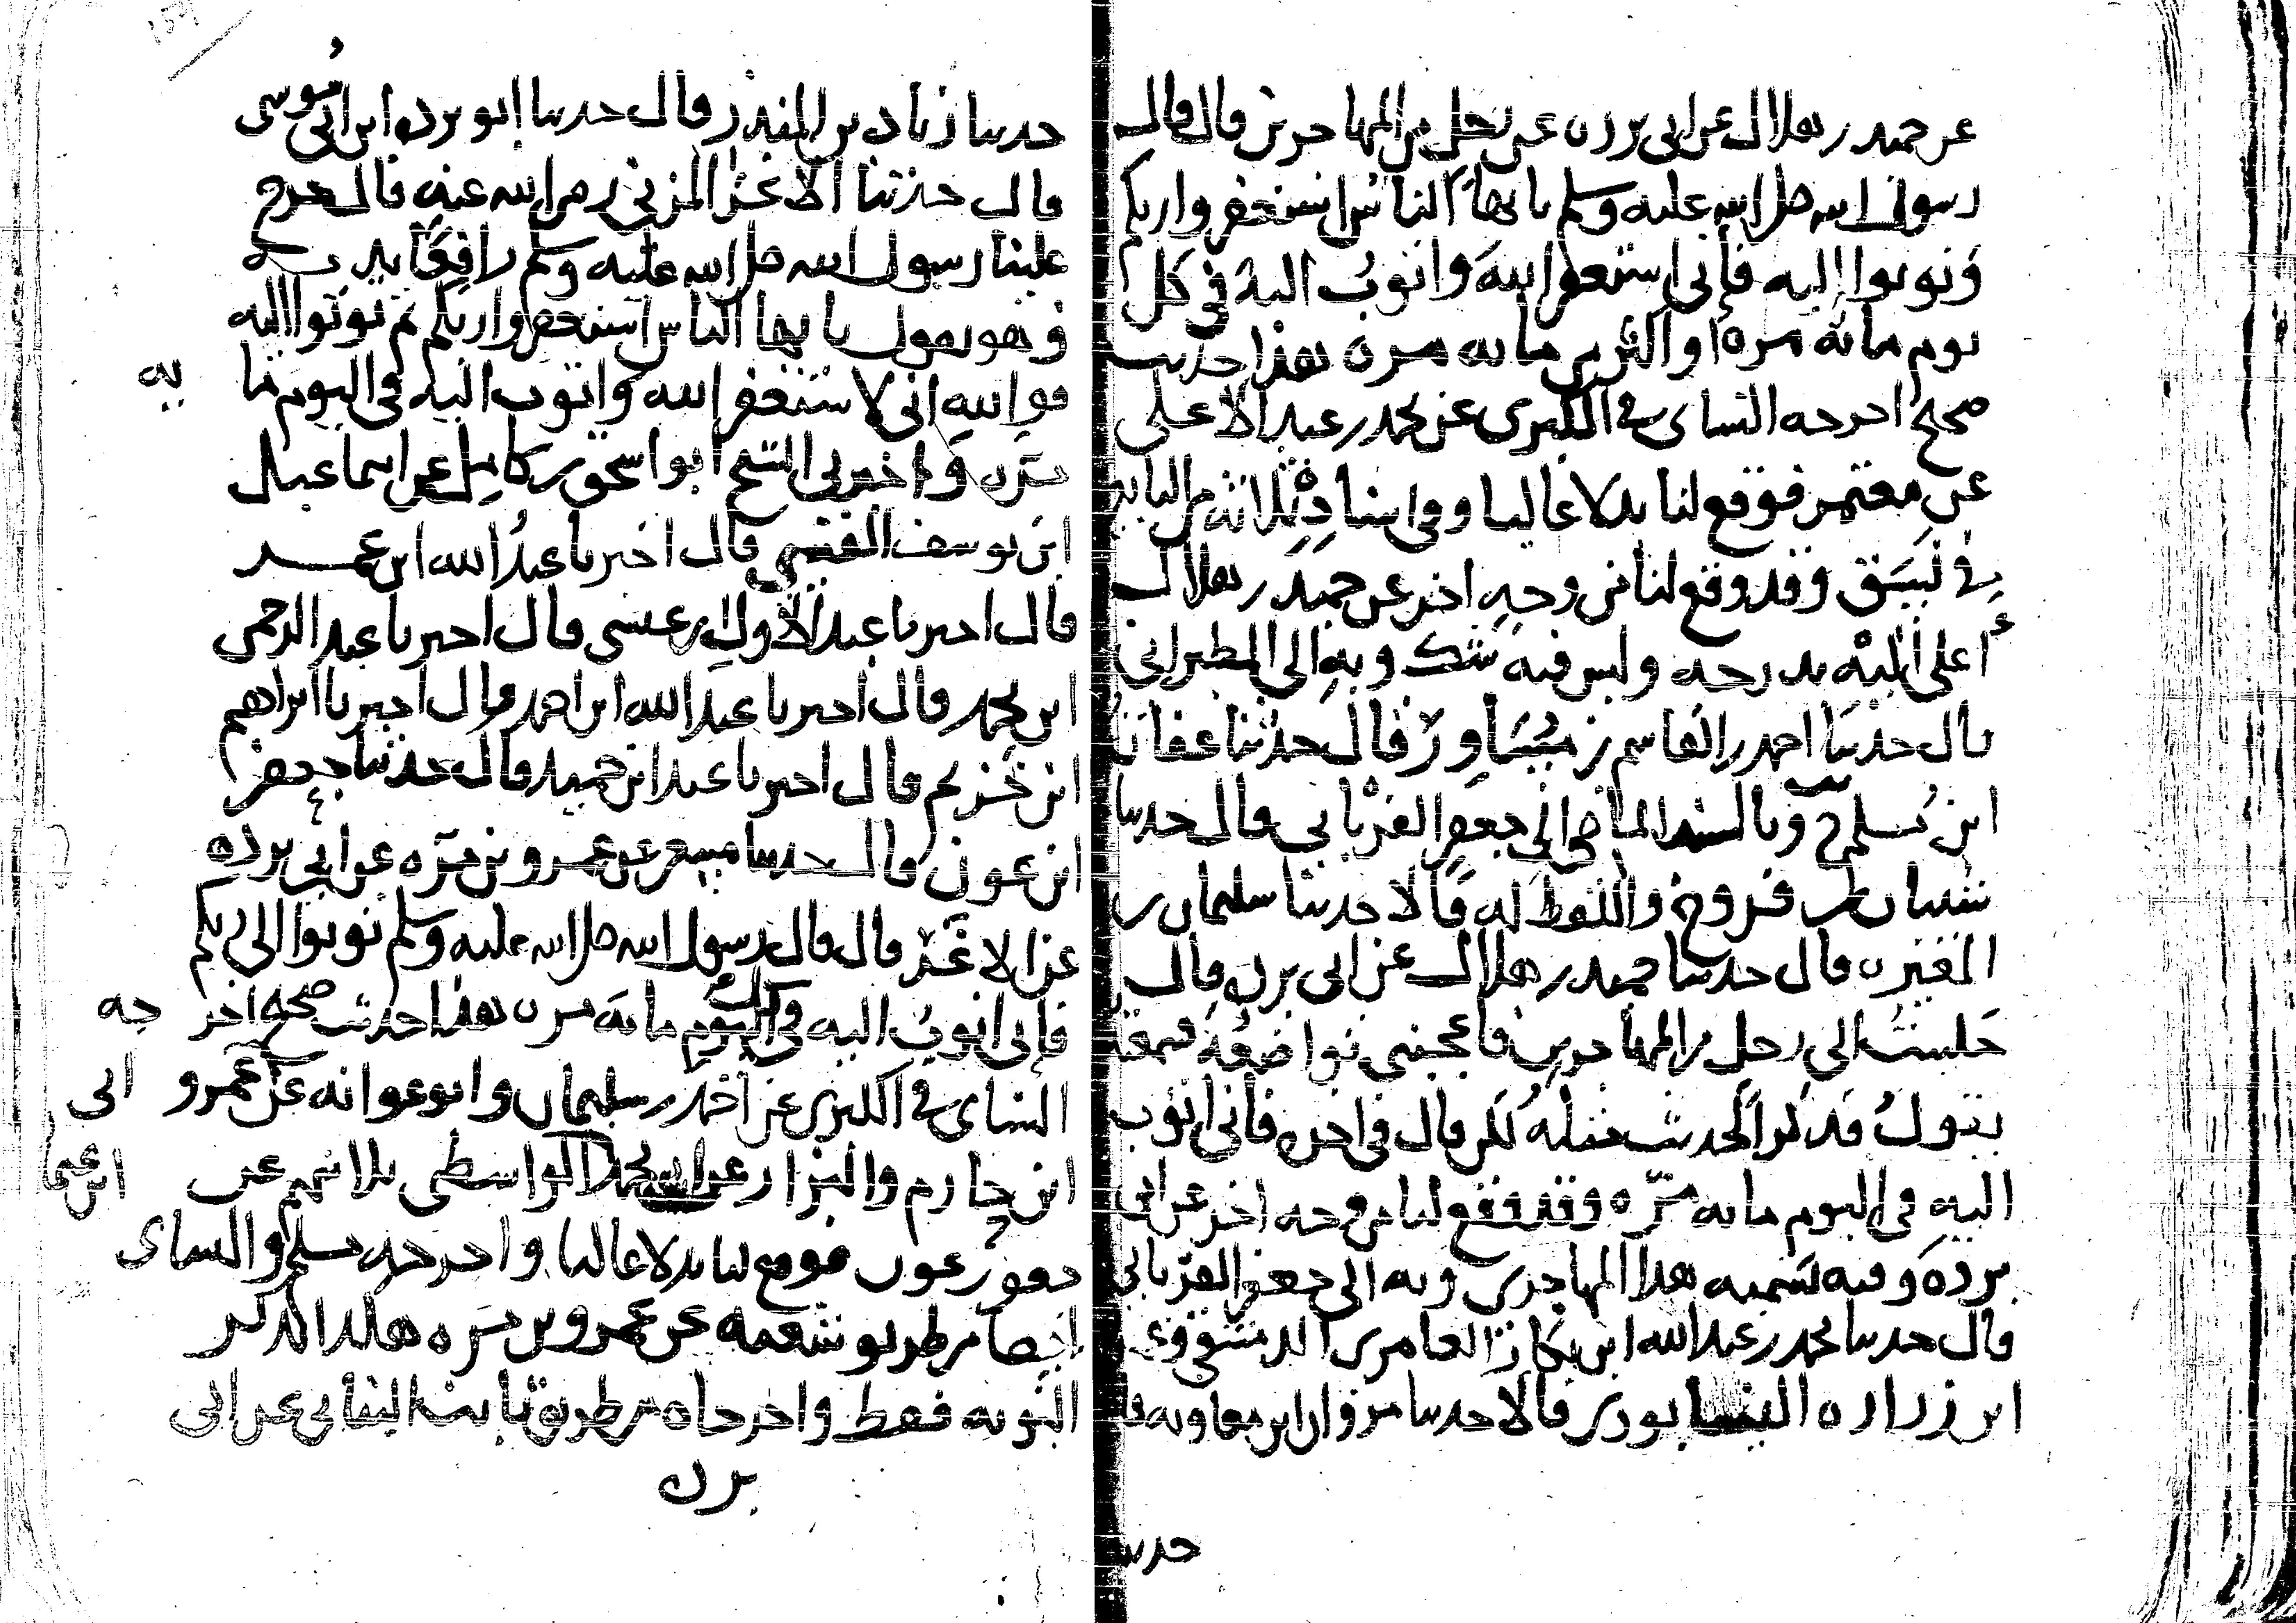 عن حميد بن هلال عن ابي بردة عن رجل من المهاجرين قال قال
رسول الله صلى الله عليه وسلم يا يها الناس استغفروا ربكم
وتوبوا إليه فإني استغفر الله وأتوب اليه في كل
يوم مائة مرة أو اكثر من مائة مرة هذا حديث
صحيح اخرجه النسائي في الكبرى عن محمد بن عبد الأعلى
عن معتمر فوقع لنا بدلا عاليا وفي اسناده ثلاثة من التابعين
في نسق وقد وقع لنا من وجه اخر عن حميد بن هلال
أعلى منه بدرجة وليس فيه شك وبه الى الطبراني
قال حدثنا احمد بن القاسم بن مساور قال حدثنا عفان
ابن مسلم ح وبالسند الماضي الى جعفر الفريابي قال حدثنا
شيبان بن فروخ واللفظ له قالا حدثنا سليمان بن
المغيرة قال حدثنا حميد بن هلال عن ابي بردة قال
جلست الى رجل من المهاجرين فأعجبني تواضعه فسمعته
يقول فذكر الحديث مثله لكن قال في اخره فأني اتوب
اليه في اليوم مائة مرة وقد وقع لنا من وجه اخر عن ابي
بردة وفيه تسمية هذا المهاجري وبه الى جعفر الفريابي
قال حدثنا محمد بن عبد الله ابن بكار العامري الدمشقي
ابن زرارة النيسابوري قالا حدثنا مروان ابن معاوية قا
حدثنا
حدثنا زياد بن المنذر قال حدثنا ابو بردة ابن ابي موسى
قال حدثنا الأغر المزني رضي الله عنه قال خرج
علينا رسول الله صلى الله عليه وسلم رافعا يديه
وهو يقول يا يها الناس استغفروا ربكم ثم توبوا اليه
فوالله اني لاستغفر الله واتوب اليه في اليوم مائة
مرة واخبرني الشيخ ابو اسحق بن كامل عن اسماعيل
ابن يوسف القيسي قال اخبرنا عبد الله ابن عمر
قال اخبرنا عبد الأول بن عيسى قال اخبرنا عبد الرحمن
ابن محمد قال اخبرنا عبد الله ابن احمد قال اخبرنا ابراهيم
ابن خزيم قال اخبرنا عبد ابن حميد قال حدثنا جعفر
ابن عون قال حدثنا مسعر عن عمرو بن مرة عن ابي بردة
عن الاغر قال قال رسول الله صلى الله عليه وسلم توبوا الى ربكم
فإني اتوب اليه في اليوم مائة مرة هذا حديث صحيح اخرجه
النسائي في الكبرى عن احمد بن سليمان وابو عوانة عن عمرو
ابن حازم والبزار عن محمد الواسطي ثلاثتهم عن
جعفر بن عون فوقع لنا بدلا عاليا واخرجه مسلم والنسائي
ايضا من طريق شعبة عن عمرو بن مرة هكذا لذكر
التوبة فقط واخرجاه من طريق ثابت البناني عن ابي
بردة